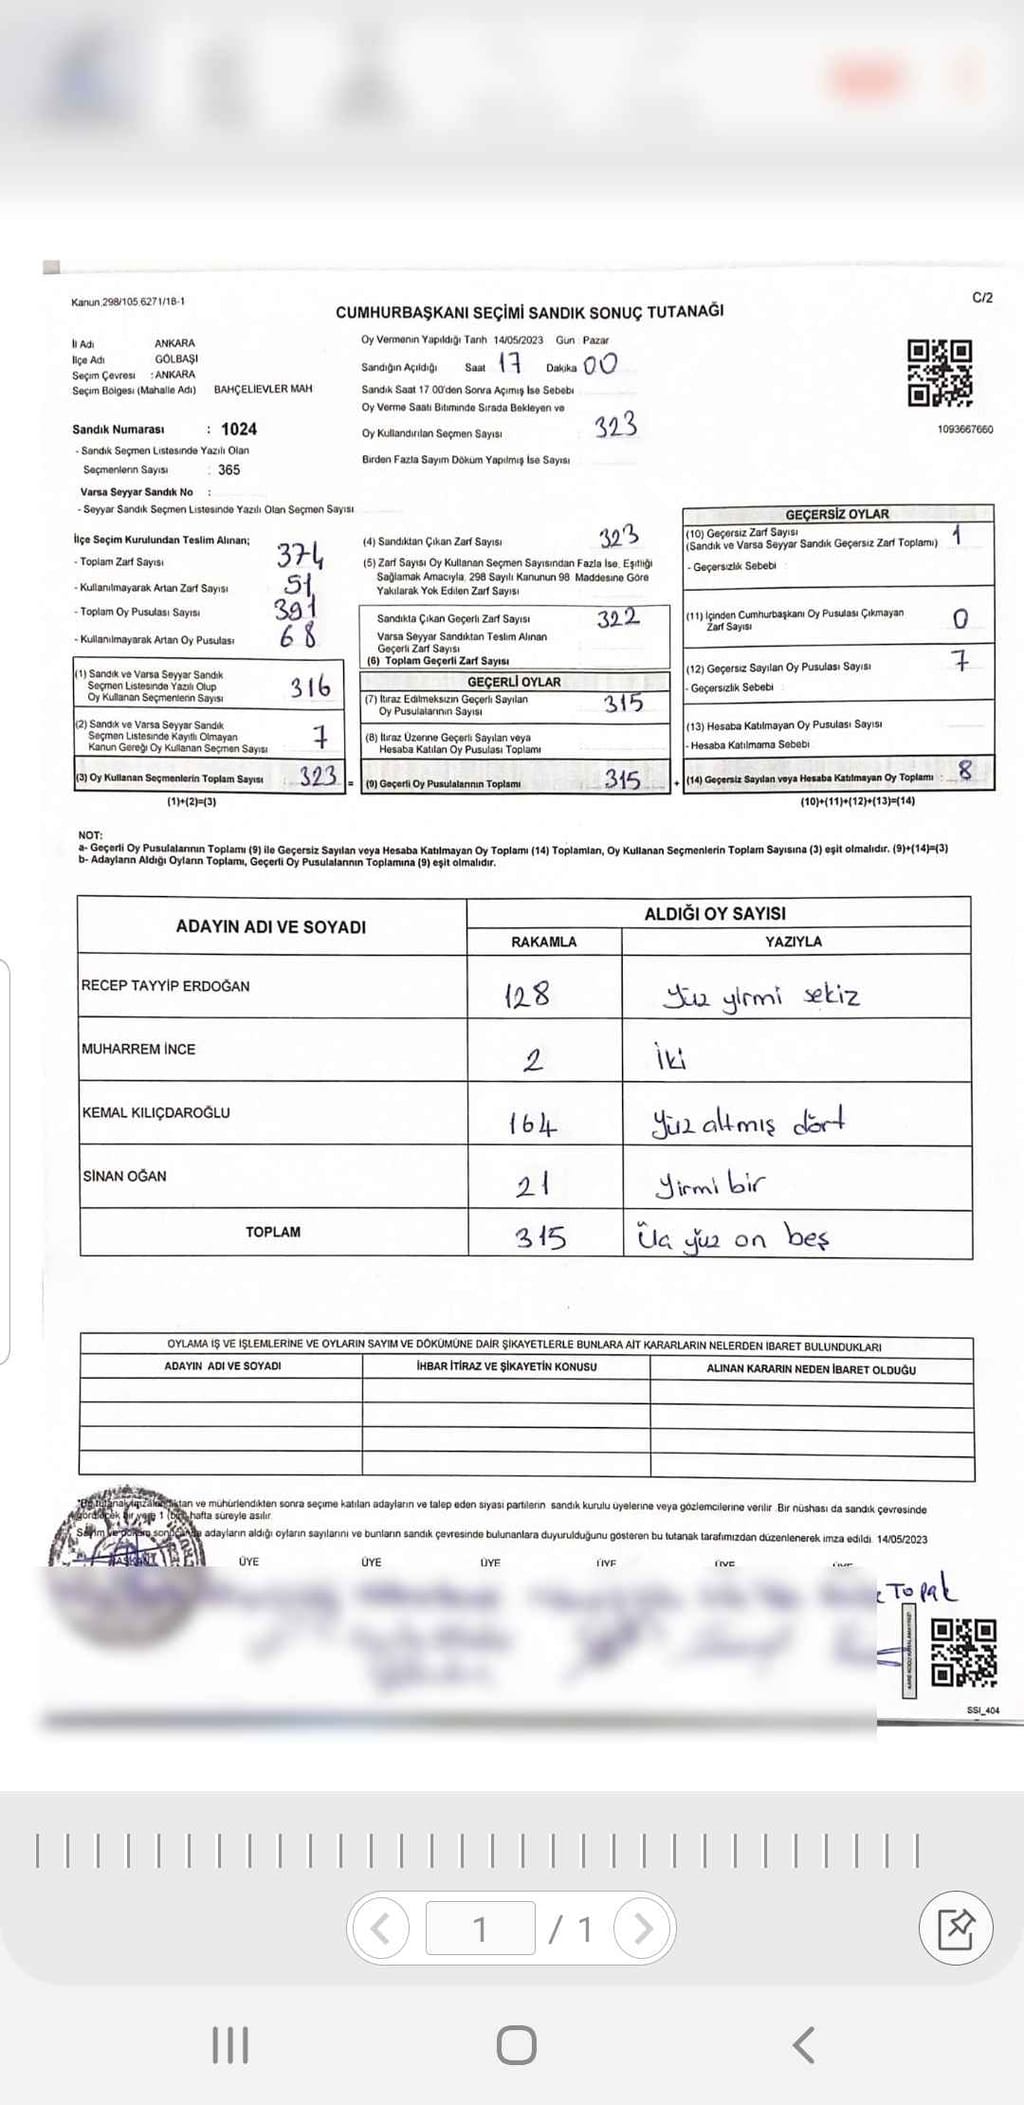 Kanun,298/105 6271/18-1
C/2
CUMHURBAŞKANI SEÇİMİ SANDIK SONUÇ TUTANAĞI
İl Adı ANKARA
İlçe Adı GÖLBAŞI
Seçim Çevresi : ANKARA
Seçim Bölgesi (Mahalle Adı) BAHÇELIEVLER MAH
Oy Vermenin Yapıldığı Tarih 14/05/2023 Gün Pazar
Sandığın Açıldığı Saat 17 Dakika 00
Sandık Saat 17 00'den Sonra Açımış İse Sebebi
Oy Verme Saati Bitiminde Sırada Bekleyen ve
Oy Kullandırılan Seçmen Sayısı 323
Birden Fazla Sayım Döküm Yapılmış İse Sayısı
1093667660
Sandık Numarası : 1024
- Sandık Seçmen Listesinde Yazılı Olan
Seçmenlerin Sayısı : 365
Varsa Seyyar Sandık No :
- Seyyar Sandık Seçmen Listesinde Yazılı Olan Seçmen Sayısı
İlçe Seçim Kurulundan Teslim Alınan;
- Toplam Zarf Sayısı 374
- Kullanılmayarak Artan Zarf Sayısı 51
- Toplam Oy Pusulası Sayısı 391
- Kullanılmayarak Artan Oy Pusulası 68
(1) Sandık ve Varsa Seyyar Sandık
Seçmen Listesinde Yazılı Olup
Oy Kullanan Seçmenlerin Sayısı 316
(2) Sandık ve Varsa Seyyar Sandık
Seçmen Listesinde Kayıtlı Olmayan
Kanun Gereği Oy Kullanan Seçmen Sayısı 7
(3) Oy Kullanan Seçmenlerin Toplam Sayısı : 323 =
(1)+(2)=(3)
(4) Sandıktan Çıkan Zarf Sayısı 323
(5) Zarf Sayısı Oy Kullanan Seçmen Sayısından Fazla İse, Eşitliği
Sağlamak Amacıyla, 298 Sayılı Kanunun 98 Maddesine Göre
Yakılarak Yok Edilen Zarf Sayısı
Sandıkta Çıkan Geçerli Zarf Sayısı 322
Varsa Seyyar Sandıktan Teslim Alınan
Geçerli Zarf Sayısı
(6) Toplam Geçerli Zarf Sayısı
GEÇERLİ OYLAR
(7) İtiraz Edilmeksizin Geçerli Sayılan
Oy Pusulalarının Sayısı 315
(8) İtiraz Üzerine Geçerli Sayılan veya
Hesaba Katılan Oy Pusulası Toplamı
(9) Geçerli Oy Pusulalarının Toplamı 315 +
GEÇERSİZ OYLAR
(10) Geçersiz Zarf Sayısı
(Sandık ve Varsa Seyyar Sandık Geçersiz Zarf Toplamı) 1
- Geçersizlik Sebebi
(11) İçinden Cumhurbaşkanı Oy Pusulası Çıkmayan
Zarf Sayısı 0
(12) Geçersiz Sayılan Oy Pusulası Sayısı 7
- Geçersizlik Sebebi
(13) Hesaba Katılmayan Oy Pusulası Sayısı
- Hesaba Katılmama Sebebi
(14) Geçersiz Sayılan veya Hesaba Katılmayan Oy Toplamı : 8
(10)+(11)+(12)+(13)=(14)
NOT:
a- Geçerli Oy Pusulalarının Toplamı (9) ile Geçersiz Sayılan veya Hesaba Katılmayan Oy Toplamı (14) Toplamları, Oy Kullanan Seçmenlerin Toplam Sayısına (3) eşit olmalıdır. (9)+(14)=(3)
b- Adayların Aldığı Oyların Toplamı, Geçerli Oy Pusulalarının Toplamına (9) eşit olmalıdır.
ADAYIN ADI VE SOYADI ALDIĞI OY SAYISI
RAKAMLA YAZIYLA
RECEP TAYYİP ERDOĞAN 128 Yüz yirmi sekiz
MUHARREM İNCE 2 İki
KEMAL KILIÇDAROĞLU 164 Yüz altmış dört
SİNAN OĞAN 21 Yirmi bir
TOPLAM 315 Üç yüz on beş
OYLAMA İŞ VE İŞLEMLERİNE VE OYLARIN SAYIM VE DÖKÜMÜNE DAİR ŞİKAYETLERLE BUNLARA AİT KARARLARIN NELERDEN İBARET BULUNDUKLARI
ADAYIN ADI VE SOYADI İHBAR İTİRAZ VE ŞİKAYETİN KONUSU ALINAN KARARIN NEDEN İBARET OLDUĞU
ve mühürlendikten sonra seçime katılan adayların ve talep eden siyasi partilerin sandık kurulu üyelerine veya gözlemcilerine verilir. Bir nüshası da sandık çevresinde
hafta süreyle asılır
adayların aldığı oyların sayılarını ve bunların sandık çevresinde bulunanlara duyurulduğunu gösteren bu tutanak tarafımızdan düzenlenerek imza edildi. 14/05/2023
BAŞKAN ÜYE ÜYE ÜYE ÜYE ÜYE
Topak
SSI_404
1 / 1